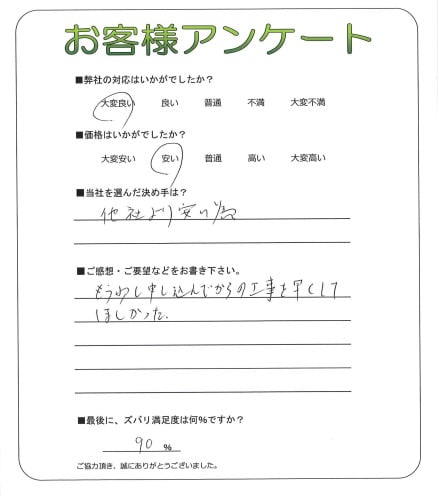 お客様アンケート
■弊社の対応はいかがでしたか？
大変良い 良い 普通 不満 大変不満
■価格はいかがでしたか？
大変安い 安い 普通 高い 大変高い
■当社を選んだ決め手は？
他社より安い為
■ご感想・ご要望などをお書き下さい。
もう少し申し込んでからの工事を早くして
ほしかった.
■最後に、ズバリ満足度は何%ですか？
90 %
ご協力頂き、誠にありがとうございました。